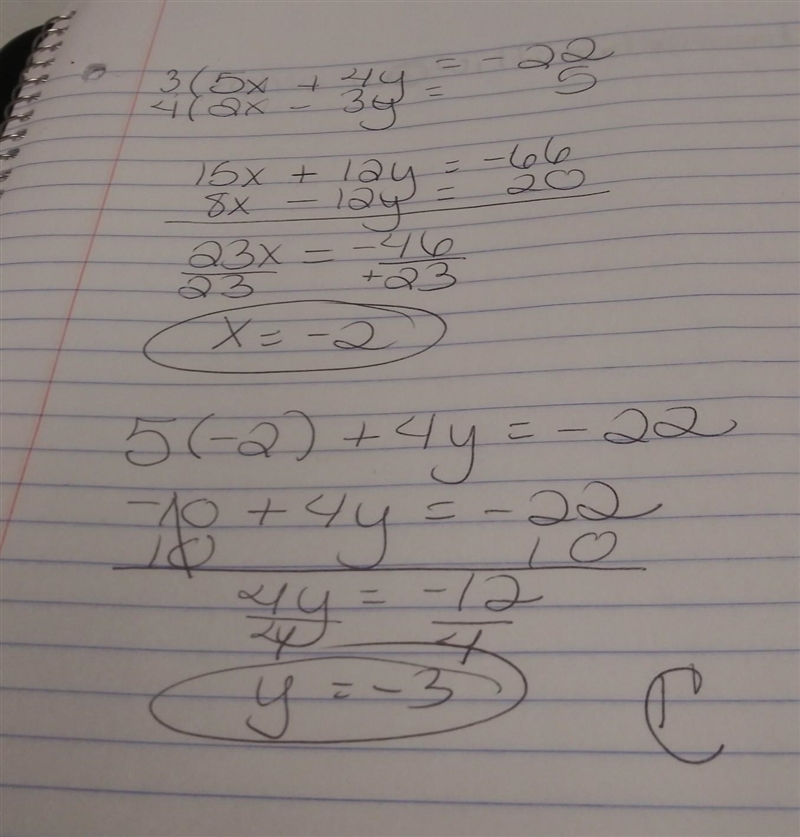 3(5x + 4y = -22
4(2x - 3y = 5
15x + 12y = -66
8x - 12y = 20
23x = -46
23 +23
x = -2
5(-2) + 4y = -22
-10 + 4y = -22
10 10
4y = -12
4 4
y = -3
C